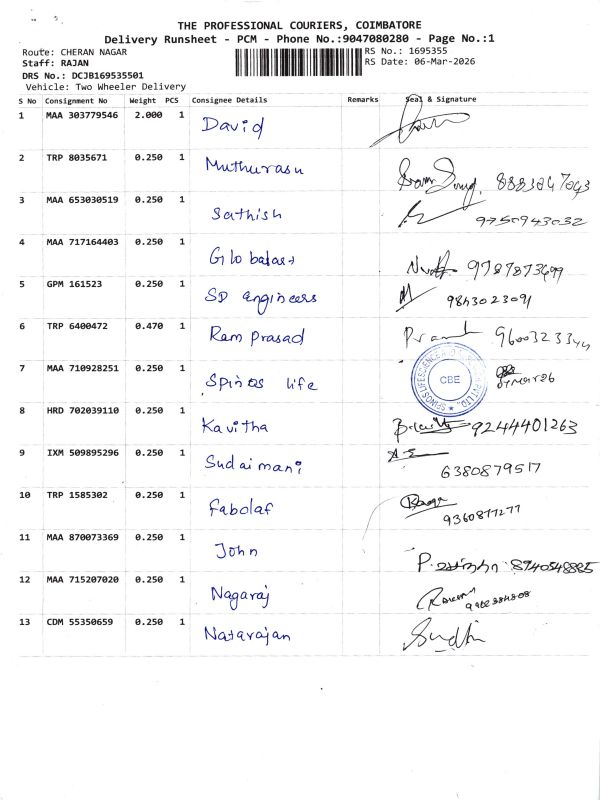 THE PROFESSIONAL COURIERS, COIMBATORE
Delivery Runsheet - PCM - Phone No.:9047080280 - Page No.:1
Route: CHERAN NAGAR
RS No.: 1695355
Staff: RAJAN
RS Date: 06-Mar-2026
DRS No.: DCJB169535501
Vehicle: Two Wheeler Delivery
S No Consignment No Weight PCS Consignee Details Remarks Seal & Signature
1 MAA 303779546 2.000 1 David
2 TRP 8035671 0.250 1 Muthurasu
3 MAA 653030519 0.250 1 Sathish 9750943032
4 MAA 717164403 0.250 1 9787873699
5 GPM 161523 0.250 1 SD engineers 9843023091
6 TRP 6400472 0.470 1 Ram prasad
7 MAA 710928251 0.250 1 Spinos life CBE
8 HRD 702039110 0.250 1 Kavitha 9244401263
9 IXM 509895296 0.250 1 Sudaimani 6380879517
10 TRP 1585302 0.250 1 Fabolaf
11 MAA 870073369 0.250 1 John
12 MAA 715207020 0.250 1 Nagaraj
13 CDM 55350659 0.250 1 Natarajan